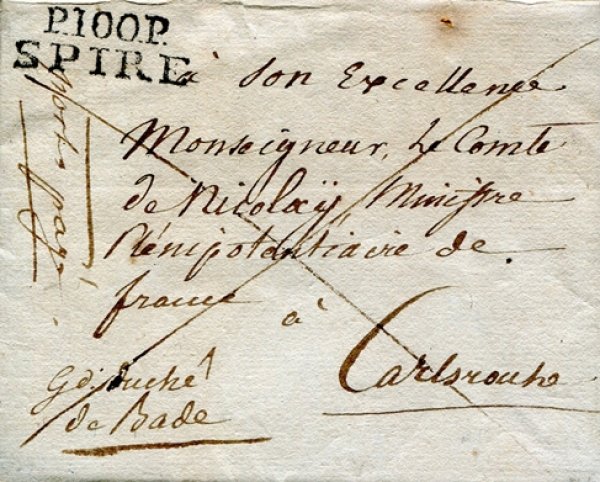 P.100.P.
SPIRE
port payé
à Son Excellence
Monseigneur, Le Comte
de Nicolaÿ, Ministre
Plénipotantiaire de
france
à
Carlsrouhe
Gd. duché
de Bade